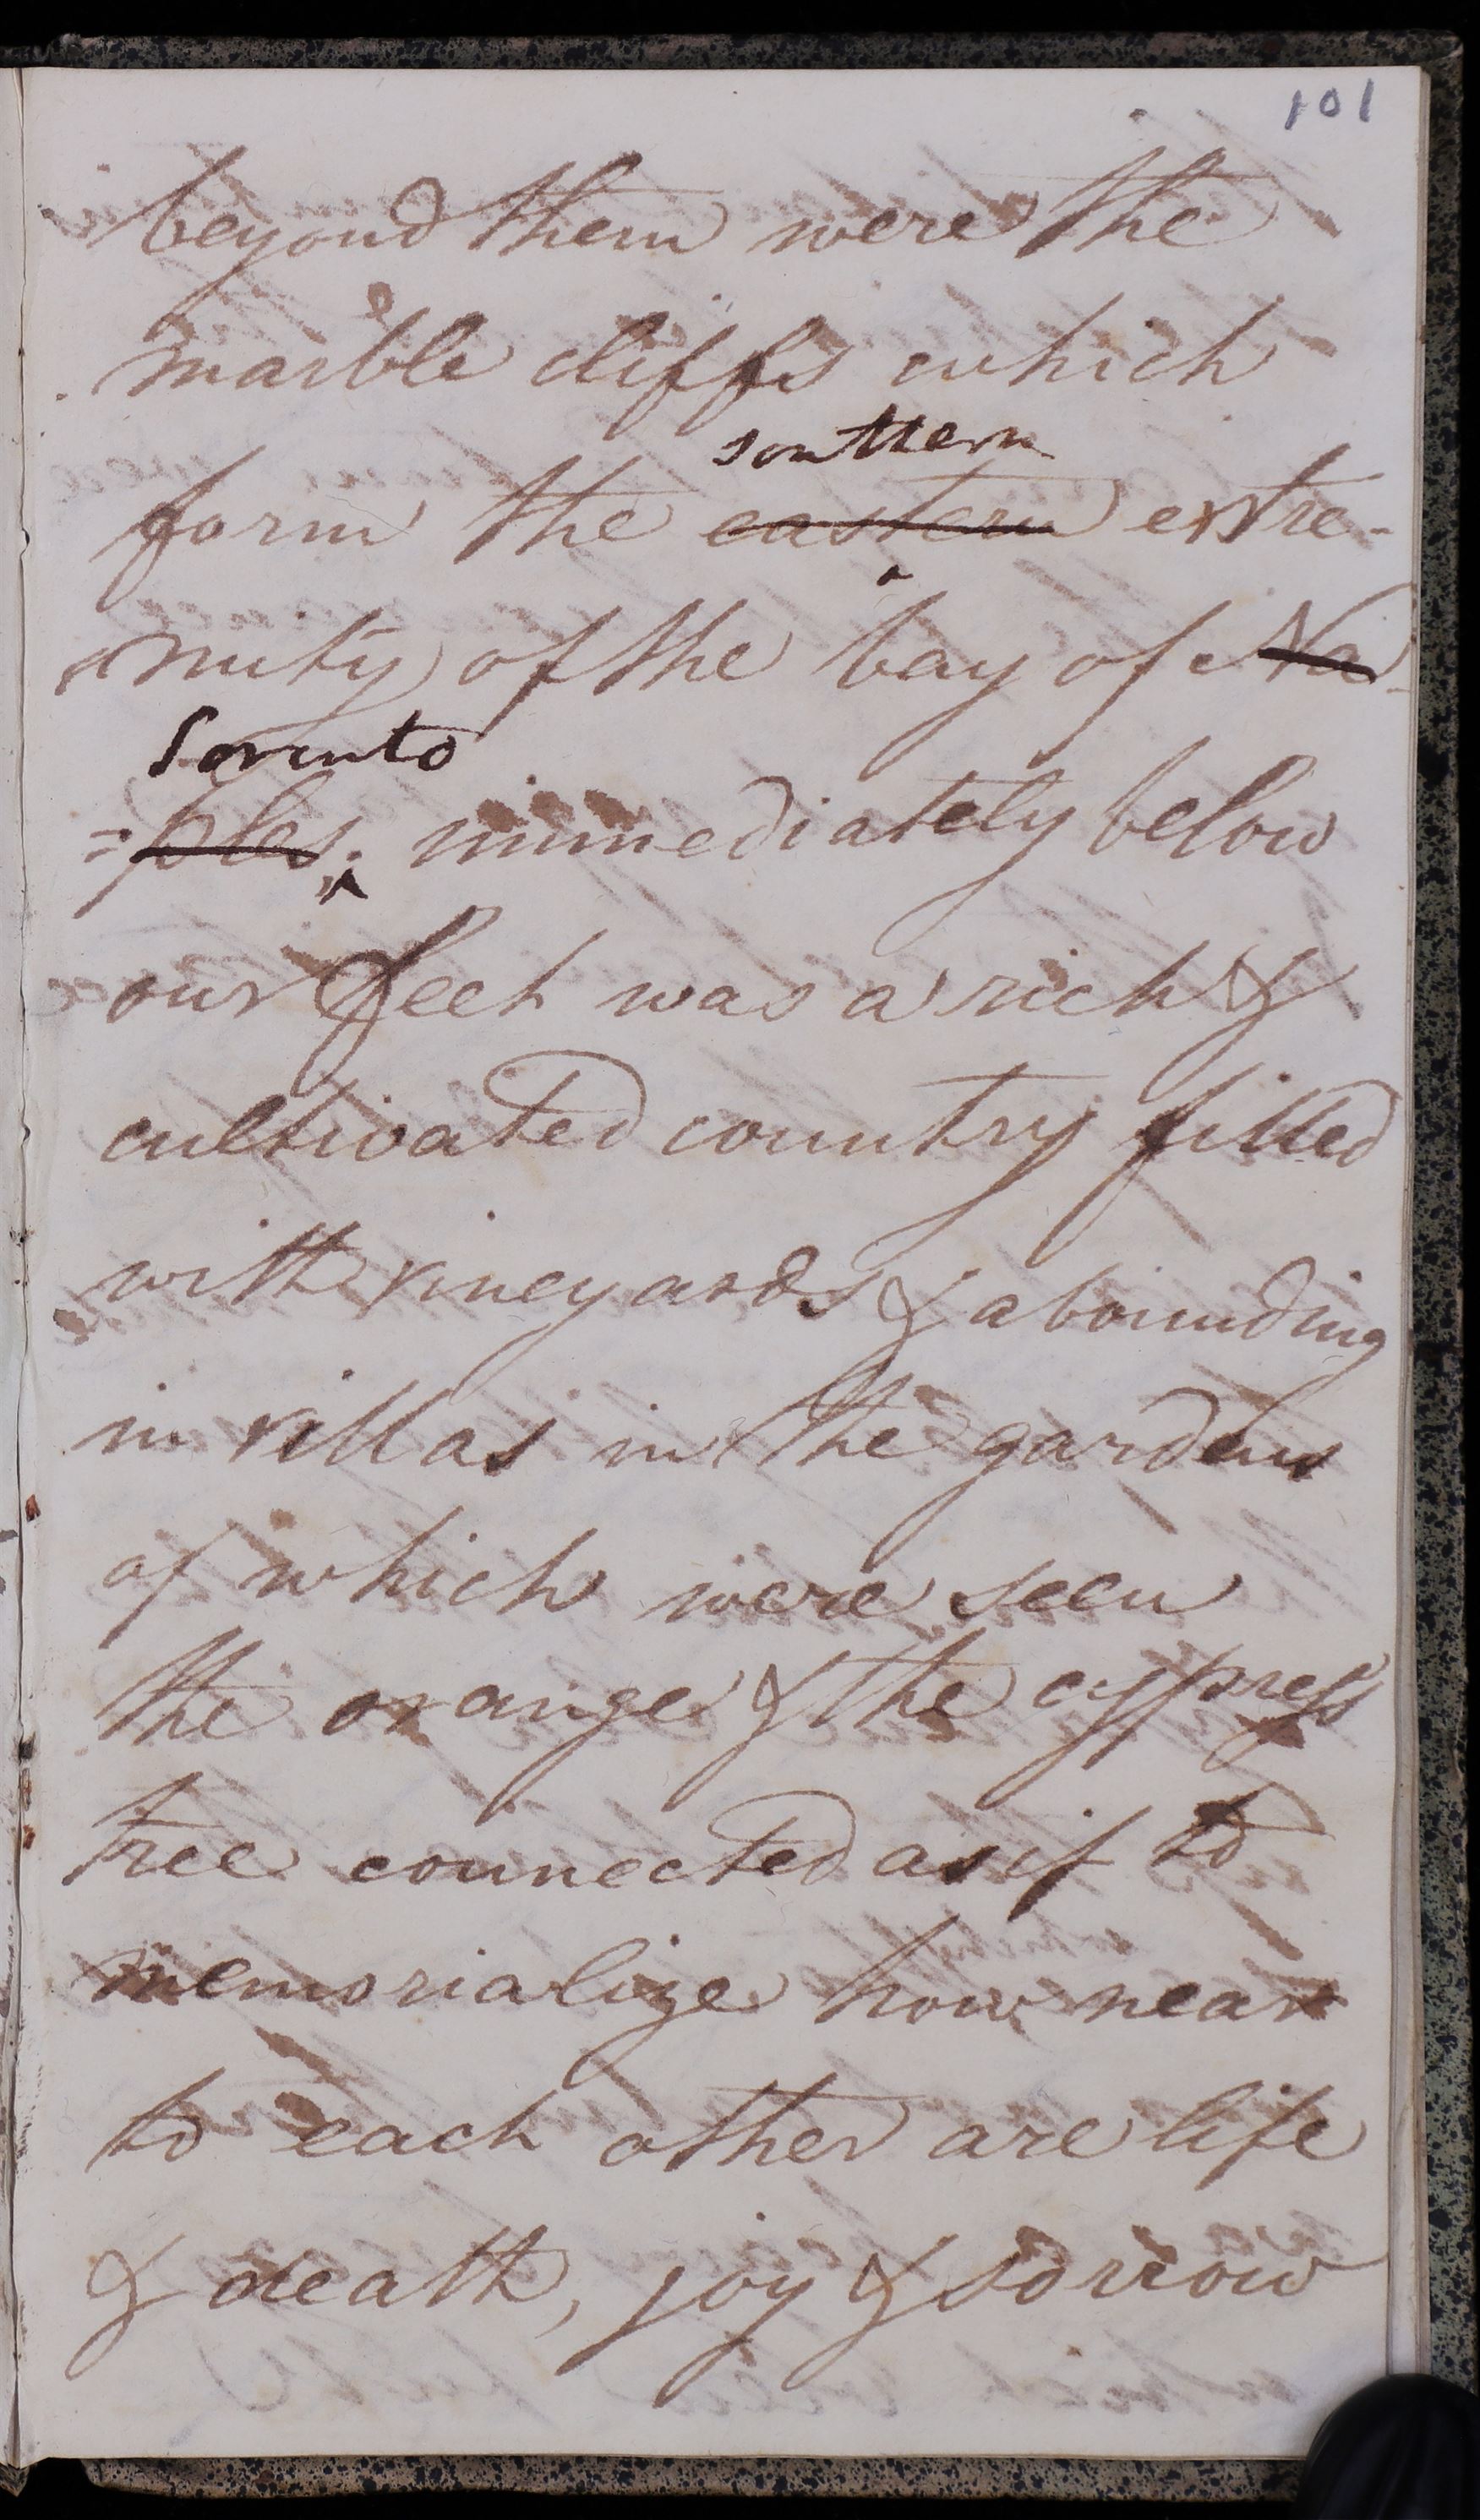 101
beyond them were the
marble cliffs which
southern
form the eastern extre-
mity of the bay of Na-
Sorento
=ples; immediately below
our feet was a rich &
cultivated country filled
with vineyards & abounding
in villas in the gardens
of which were seen
the orange & the cypress
tree connected as if to
memorialize how near
to each other are life
& death, joy & sorrow